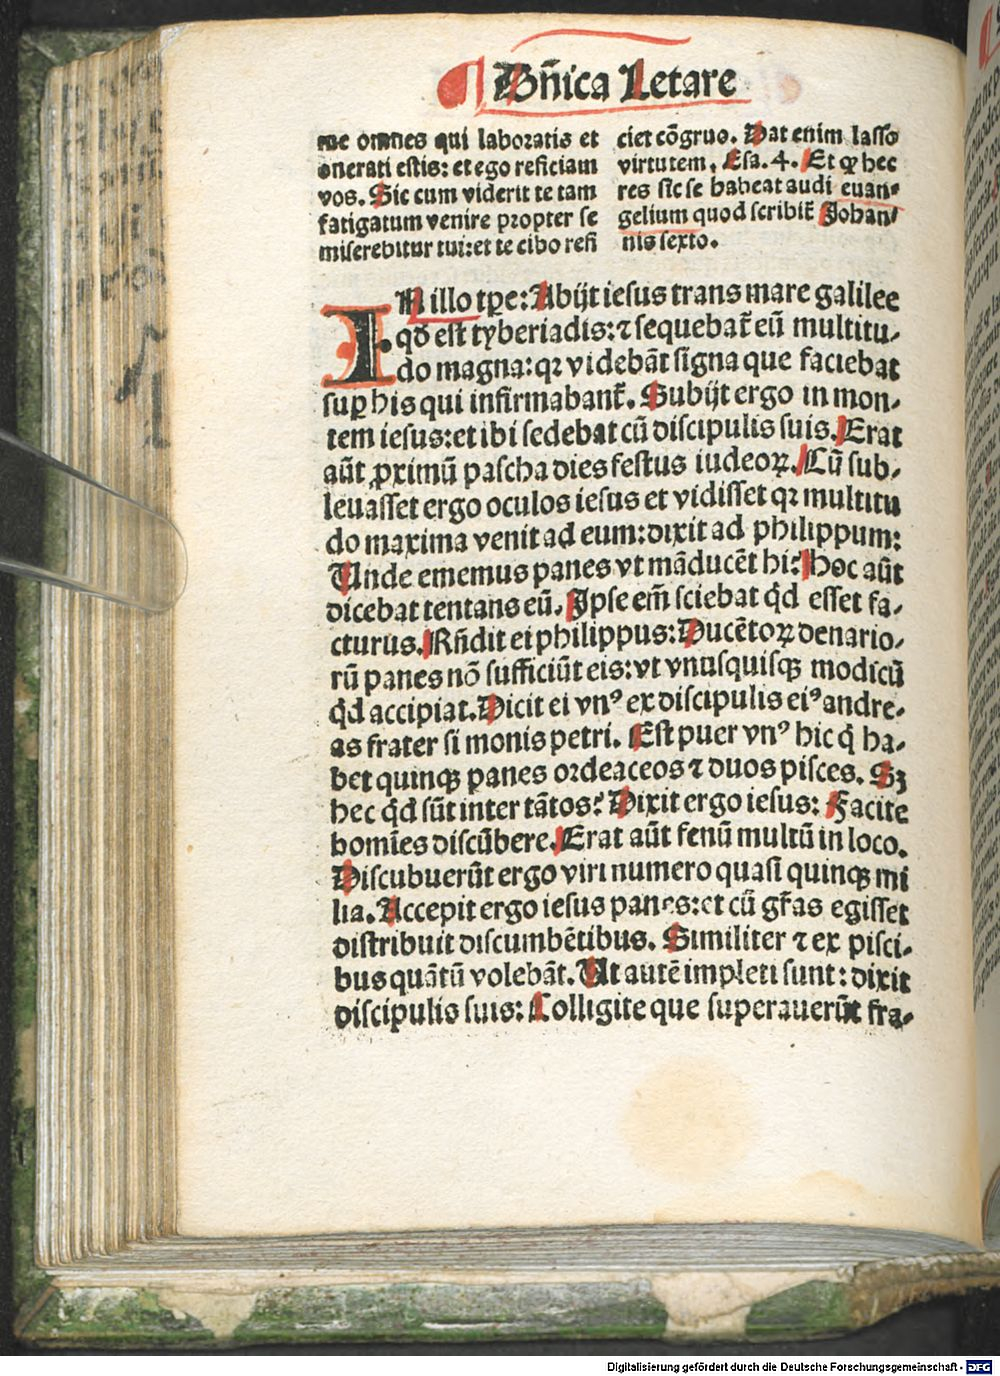 Dñica Letare
me omnes qui laboratis et
onerati estis: et ego reficiam
vos. Sic cum viderit te tam
fatigatum venire propter se
miserebitur tui: et te cibo refi
ciet cõgruo. Dat enim lasso
virtutem. Esa. 4. Et qꝙ hec
res sic se habeat audi euan-
gelium quod scribit̃ Johan-
nis sexto.
IN illo tꝑe: Abijt iesus trans mare galilee
qđ est tyberiadis: ⁊ sequebat̃ eũ multitu-
do magna: qꝛ videbãt signa que faciebat
suꝑ his qui infirmabant̃. Subijt ergo in mon-
tem iesus: et ibi sedebat cũ discipulis suis. Erat
aũt ꝓximũ pascha dies festus iudeoꝝ. Cũ sub-
leuasset ergo oculos iesus et vidisset qꝛ multitu
do maxima venit ad eum: dixit ad philippum:
Unde ememus panes vt mãducẽt hi? hoc aũt
dicebat tentans eũ. Ipse em̃ sciebat qđ esset fa-
cturus. Rñdit ei philippus: Ducẽtoꝝ denario-
rũ panes nõ sufficiũt eis: vt vnusquisqꝫ modicũ
qđ accipiat. Dicit ei vnꝰ ex discipulis eiꝰ andre-
as frater simonis petri. Est puer vnꝰ hic q̃ ha-
bet quinqꝫ panes ordeaceos ⁊ duos pisces. Sꝫ
hec qđ sũt inter tãtos? Dixit ergo iesus: Facite
homĩes discũbere. Erat aũt fenũ multũ in loco.
Discubuerũt ergo viri numero quasi quinqꝫ mi
lia. Accepit ergo iesus panes: et cũ gr̃as egisset
distribuit discumbẽtibus. Similiter ⁊ ex pisci-
bus quãtũ volebãt. Ut autẽ impleti sunt: dixit
discipulis suis: Colligite que superauerũt fra-
Digitalisierung gefördert durch die Deutsche Forschungsgemeinschaft - DFG